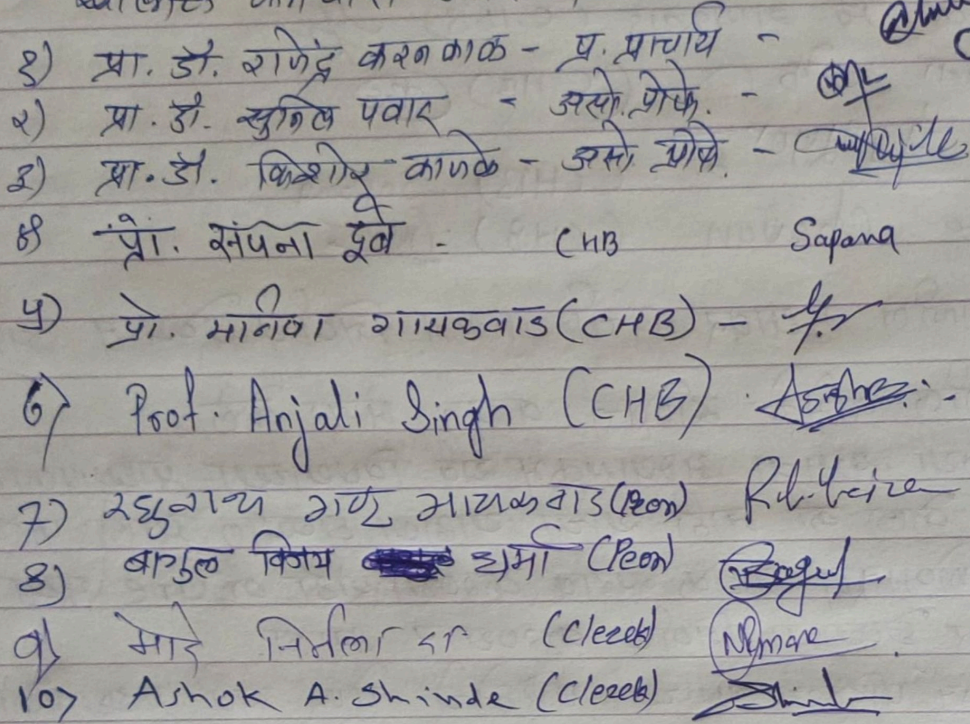 १) प्रा. डॉ. राजेंद्र करनकाळ - प्र. प्राचार्य -
२) प्रा. डॉ. सुनिल पवार - असो. प्रोफे. -
३) प्रा. डॉ. किशोर काळके - असो प्रोफे. -
४) प्रा. सपना दुबे - CHB Sapana
५) प्रो. गायकवाड (CHB) -
6) Prof. Anjali Singh (CHB).
7) रघुनाथ गायकवाड (Peon)
8) बागुल विजय धर्मा (Peon) Bagul
९) मोरे निर्मला (Clerk) Nmore
10) Ashok A. Shinde (Clerk)